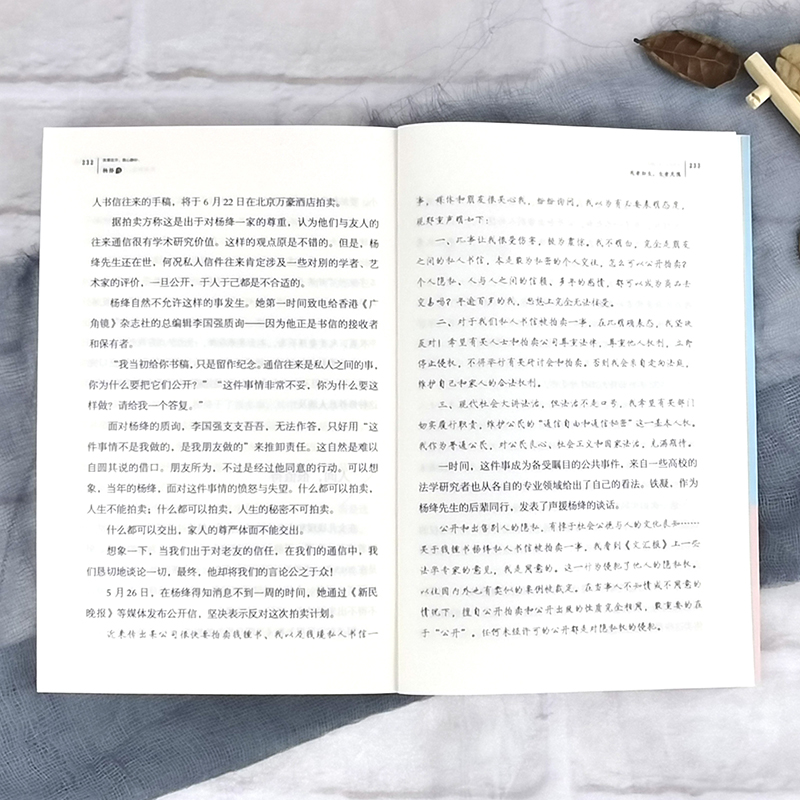 232
杨绛传
人书信往来的手稿，将于 6 月 22 日在北京万豪酒店拍卖。
据拍卖方称这是出于对杨绛一家的尊重，认为他们与友人的
往来通信很有学术研究价值。这样的观点原是不错的。但是，杨
绛先生还在世，何况私人信件往来肯定涉及一些对别的学者、艺
术家的评价，一旦公开，于人于己都是不合适的。
杨绛自然不允许这样的事发生。她第一时间致电给香港《广
角镜》杂志社的总编辑李国强质询——因为他正是书信的接收者
和保有者。
“我当初给你书稿，只是留作纪念。通信往来是私人之间的事，
你为什么要把它们公开？”“这件事情非常不妥，你为什么要这
样做？请给我一个答复。”
面对杨绛的质询，李国强支支吾吾，无法作答，只好用“这
件事情不是我做的，是我朋友做的”来推卸责任。这自然是难以
自圆其说的借口。朋友所为，不过是经过他同意的行动。可以想
象，当年的杨绛，面对这件事情的愤怒与失望。什么都可以拍卖，
人生不能拍卖；什么都可以拍卖，人生的秘密不可拍卖。
什么都可以交出，家人的尊严体面不能交出。
想象一下，当我们出于对老友的信任，在我们的通信中，我
们恳切地谈论一切，最终，他却将我们的言论公之于众！
5 月 26 日，在杨绛得知消息不到一周的时间，她通过《新民
晚报》等媒体发布公开信，坚决表示反对这次拍卖计划。
近来传出某公司很快要拍卖钱锺书、我以及钱瑗私人书信一
233
事，媒体和朋友很关心我，纷纷询问，我以为有必要表明态度，
现郑重声明如下：
一、此事让我很受伤害，极为震惊。我不明白，完全是朋友
之间的私人书信，本是最为私密的个人交往，怎么可以公开拍卖？
个人隐私、人与人之间的信赖、多年的感情，都可以成为商品去
交易吗？年逾百岁的我，思想上完全无法接受。
二、对于我们私人书信被拍卖一事，在此明确表态，我坚决
反对！希望有关人士和拍卖公司尊重法律，尊重他人权利，立即
停止侵权，不得举行有关研讨会和拍卖。否则我会亲自走向法庭，
维护自己和家人的合法权利。
三、现代社会大讲法治，但法治不是口号，我希望有关部门
切实履行职责，维护公民的“通信自由和通信秘密”这一基本人权。
我作为普通公民，对公民良心、社会正义和国家法治，充满期待。
一时间，这件事成为备受瞩目的公共事件，来自一些高校的
法学研究者也从各自的专业领域给出了自己的看法。铁凝，作为
杨绛先生的后辈同行，发表了声援杨绛的谈话。
公开和出售别人的隐私，有悖于社会公德与人的文化良知……
关于钱锺书杨绛私人书信被拍卖一事，我看到《文汇报》上一些
法学专家的意见，我是同意的。这一行为侵犯了他人的隐私权。
以往国内外也有类似的案例被裁定。在当事人不知情或不同意的
情况下，擅自公开拍卖和公开出版的性质完全相同，最重要的在
于“公开”。任何未经许可的公开都是对隐私权的侵犯。